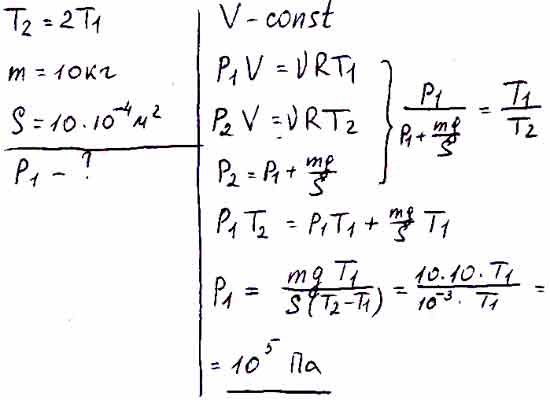 T₂ = 2T₁
m = 10кг
S = 10·10⁻⁴ м²
P₁ - ?
V - const
P₁V = νRT₁
P₂V = νRT₂
P₂ = P₁ + mg/S
} P₁/(P₁ + mg/S) = T₁/T₂
P₁T₂ = P₁T₁ + mg/S T₁
P₁ = mg T₁/(S(T₂-T₁)) = 10·10·T₁/(10⁻³·T₁) =
= 10⁵ Па